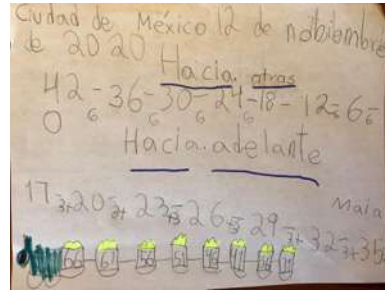 Ciudad de México 12 de nobiembre
de 2020
Hacia. atras
42-36-30-24-18-12-6-
6 6 6 6 6
0
Hacia. adelante
Maia
17 3+ 20 3+ 23 +3 26 +3 29 3+ 32 3+ 35
66 61 56 51 46 41